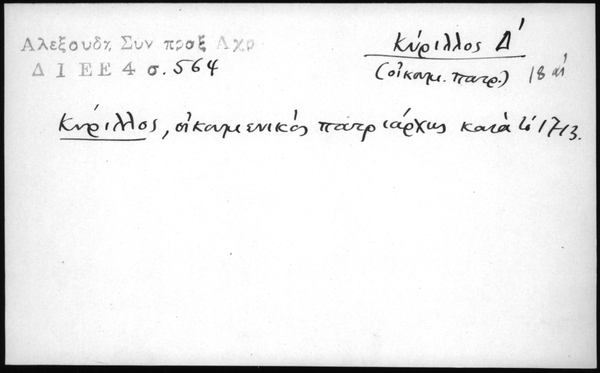 Αλεξουδη Συν πραξ Αχρ
Δ Ι Ε Ε 4 σ. 564
Κύριλλος Δ'
(οἰκουμ. πατρ.) 18 αἰ
Κύριλλος, οἰκουμενικός πατριάρχης κατά τό 1713.